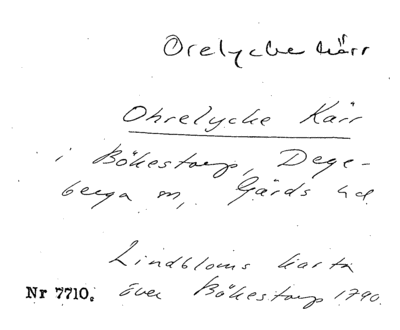 Orelycke kärr
Ohrelycke Kärr
i Bökestorp, Dege-
berga sn, Gärds hd.
Lindbloms karta
Nr 7710. över Bökestorp 1790.